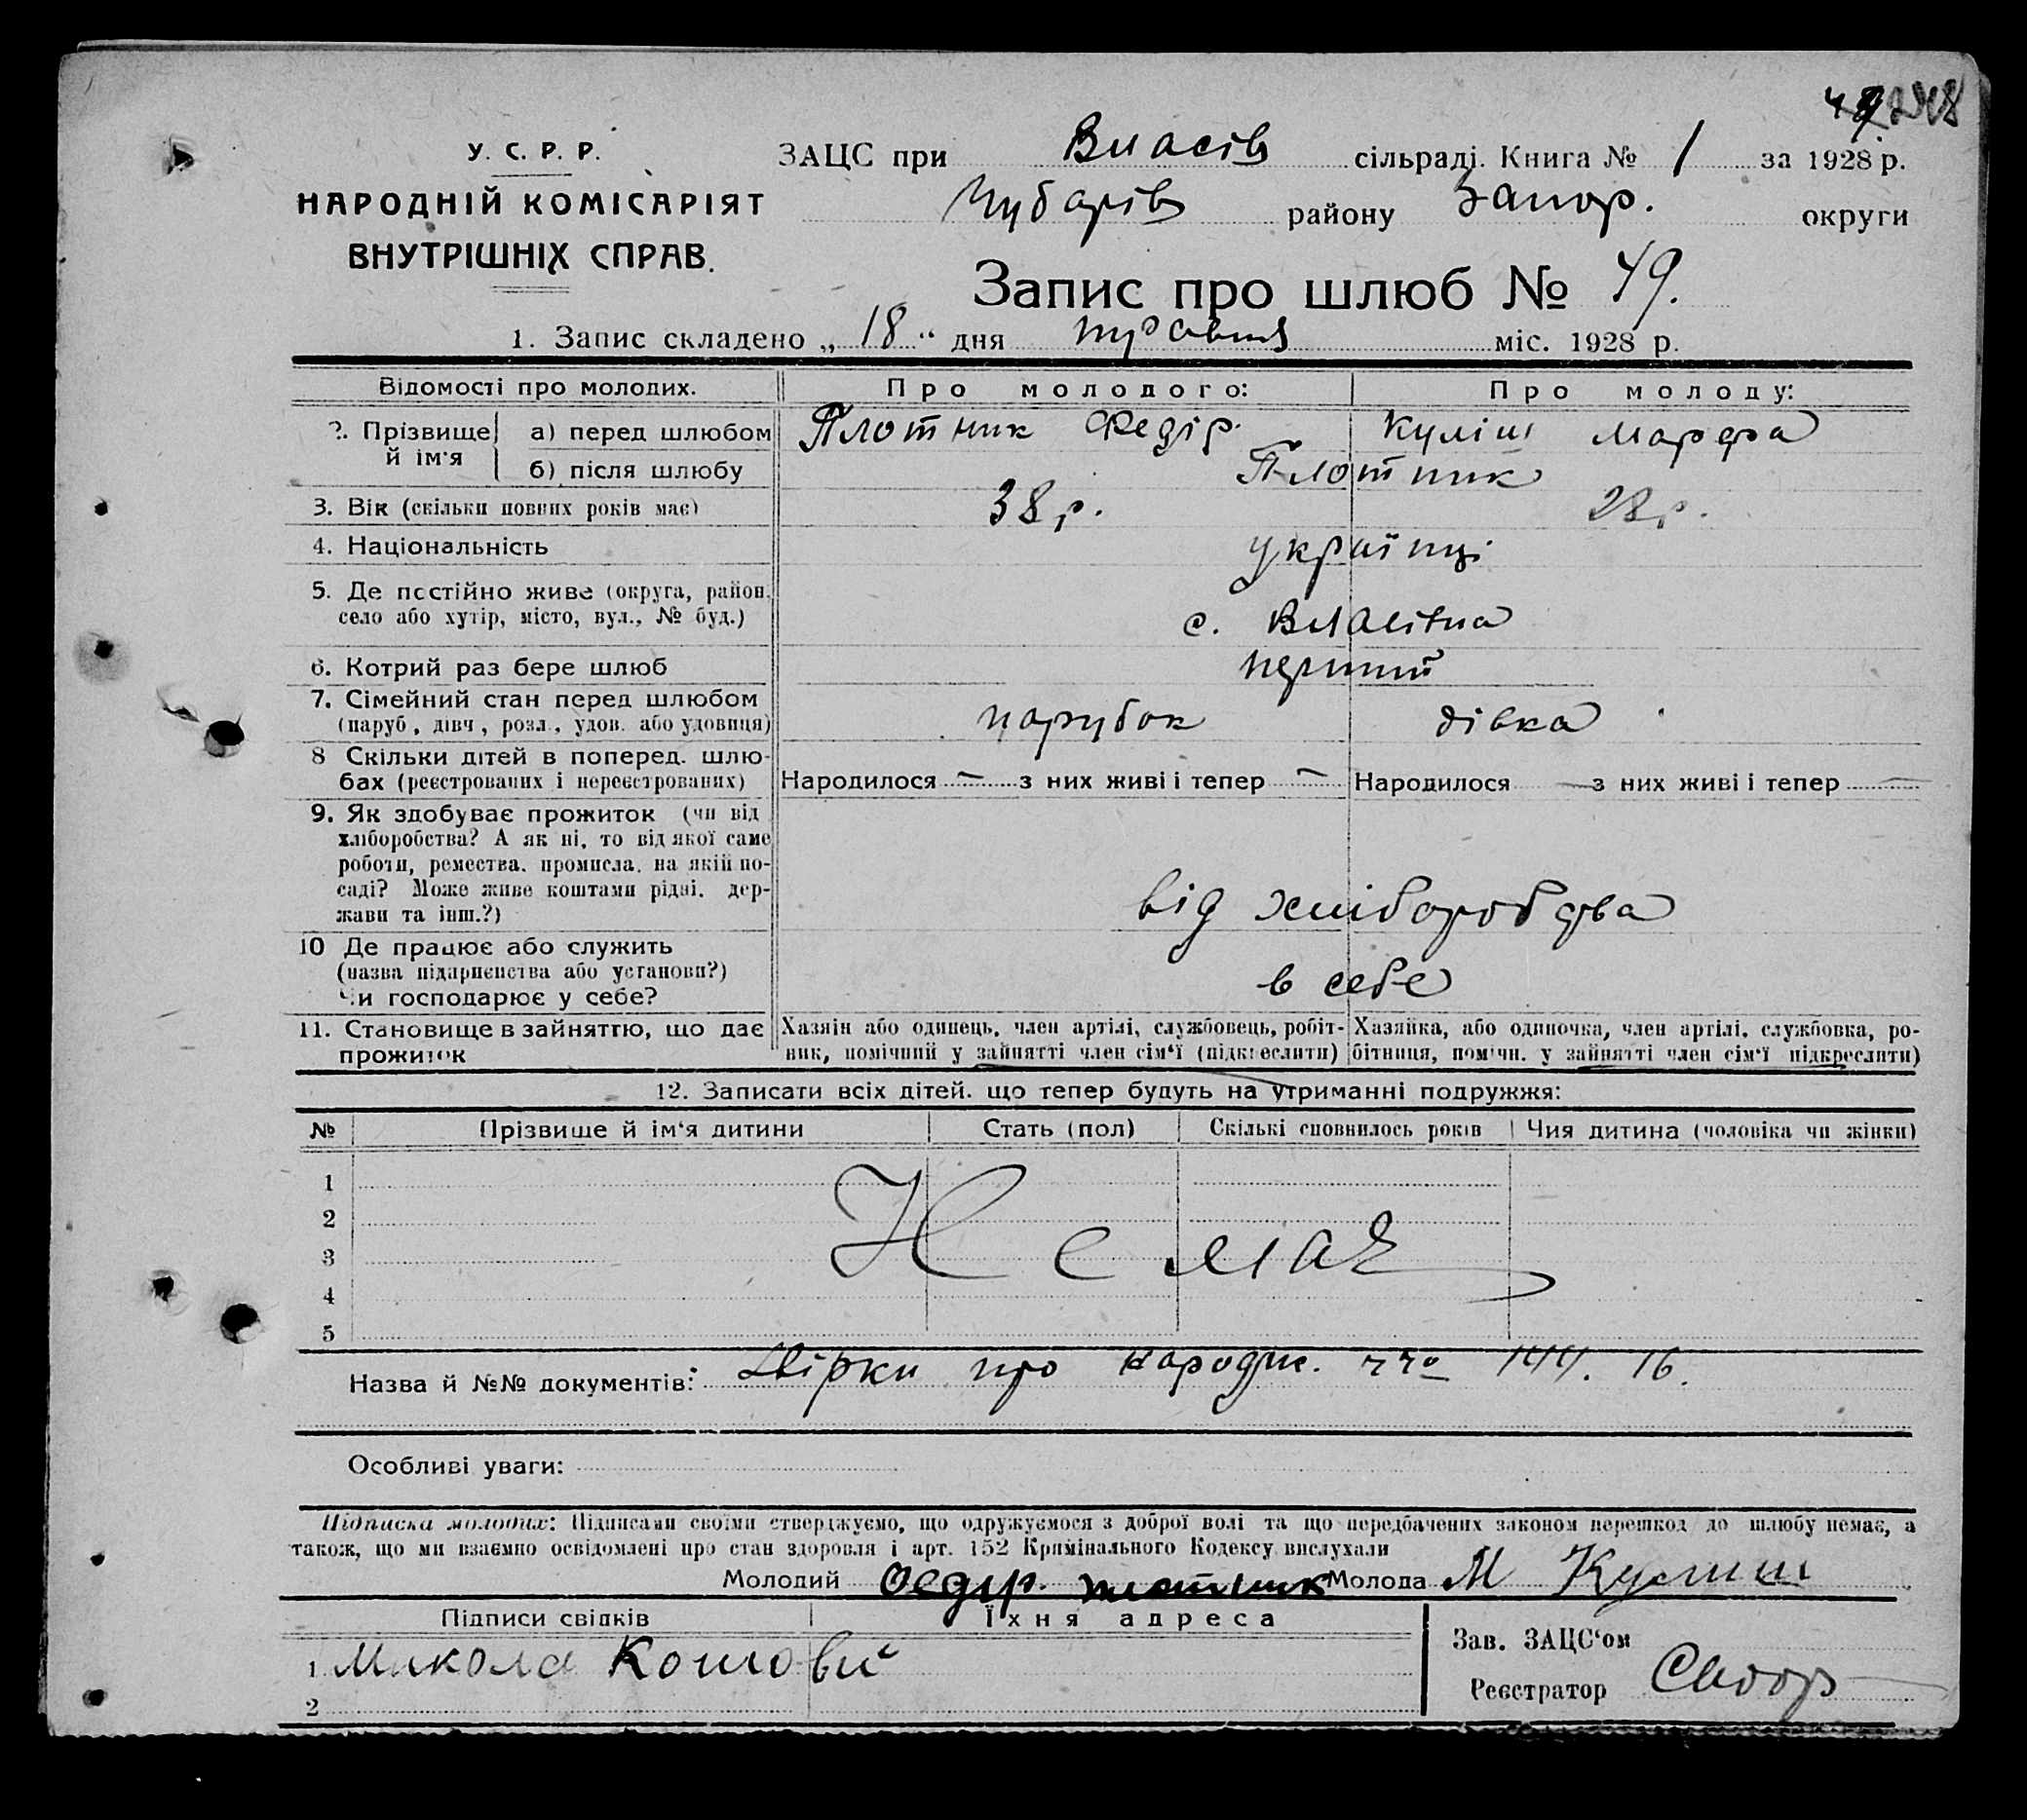 У. С. Р. Р.
НАРОДНІЙ КОМІСАРІЯТ
ВНУТРІШНІХ СПРАВ.
ЗАЦС при Власів сільраді. Книга № 1 за 1928 р.
Чубарів району Запор. округи
Запис про шлюб № 49.
1. Запис складено „ 18 “ дня травня міс. 1928 р.
Відомості про молодих. Про молодого: Про молоду:
2. Прізвище й ім'я а) перед шлюбом Плотник Федір. Куліш Марфа
б) після шлюбу Плотник
3. Вік (скільки повних років має) 38 р. 28 р.
4. Національність українці
5. Де постійно живе (округа, район,
село або хутір, місто, вул., № буд.) с. Власівка
6. Котрий раз бере шлюб перший
7. Сімейний стан перед шлюбом
(паруб., дівч., розл., удов. або удовиця) парубок дівка
8 Скільки дітей в поперед. шлю-
бах (реєстрованих і нереєстрованих) Народилося — з них живі і тепер — Народилося — з них живі і тепер —
9. Як здобуває прожиток (чи від
хліборобства? А як ні, то від якої саме
роботи, ремества, промисла, на якій по-
саді? Може живе коштами рідні, дер-
жави та інш.?) від хліборобства
10 Де працює або служить
(назва підприємства або установи?)
Чи господарює у себе? в себе
11. Становище в зайняттю, що дає
прожиток
Хазяїн або одинець, член артілі, службовець, робіт-
ник, помічний у зайнятті член сім'ї (підкреслити)
Хазяйка, або одиночка, член артілі, службовка, ро-
бітниця, помічн. у зайнятті член сім'ї підкреслити)
12. Записати всіх дітей, що тепер будуть на утриманні подружжя:
№ Прізвище й ім'я дитини Стать (пол) Скількі сповнилось років Чия дитина (чоловіка чи жінки)
1
2
3 Немає
4
5
Назва й №№ документів: про народж. 144. 16.
Особливі уваги:
Підписка молодих: Підписами своїми стверджуємо, що одружуємося з доброї волі та що передбачених законом перешкод до шлюбу немає, а
також, що ми взаємно освідомлені про стан здоровля і арт. 152 Крямінального Кодексу вислухали
Молодий Федир. Молода М Кулиш
Підписи свідків Їхня адреса
1 Микола Кошовий
2
Зав. ЗАЦС'ом
Реєстратор